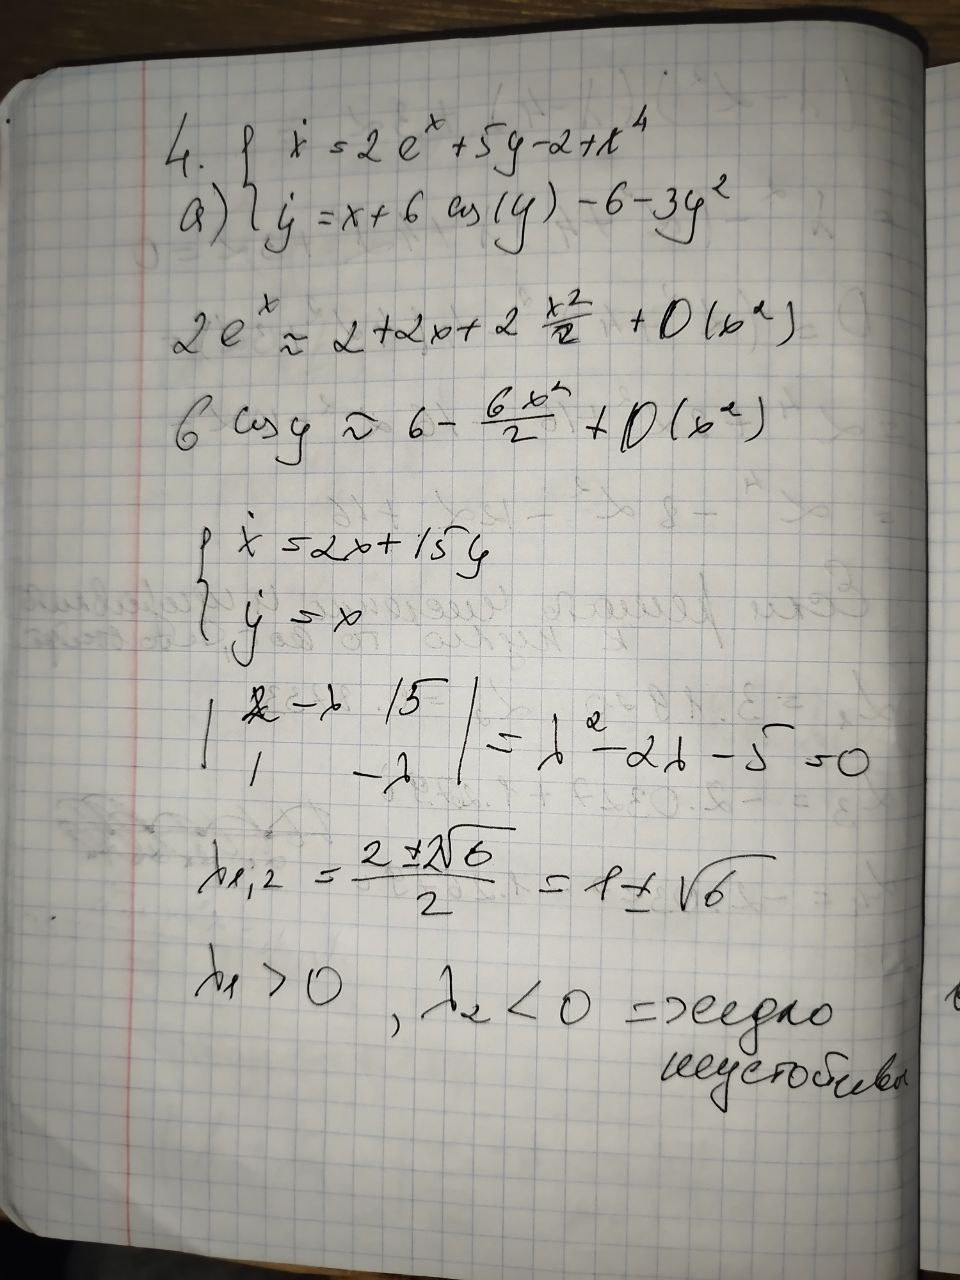 4. { ẋ = 2e^x + 5y - 2 + x^4
а) { ẏ = x + 6 cos(y) - 6 - 3y^2
2e^x ≈ 2 + 2x + 2 x^2/2 + O(x^2)
6 cos y ≈ 6 - 6x^2/2 + O(x^2)
{ ẋ = 2x + 15y
{ ẏ = x
| 2-λ 15 |
| 1 -λ | = λ^2 - 2λ - 5 = 0
λ1,2 = (2 ± 2√6)/2 = 1 ± √6
λ1 > 0, λ2 < 0 => седло
неустойчивы